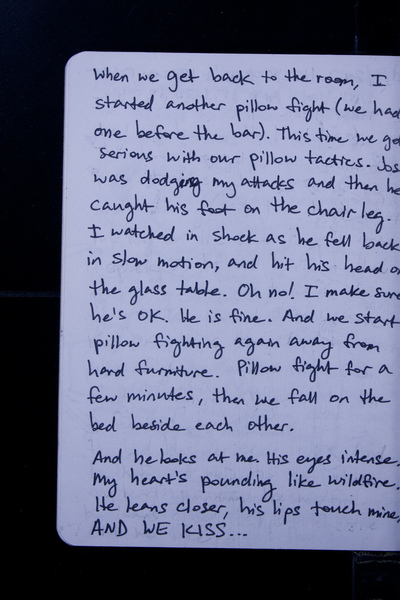 When we get back to the room, I
started another pillow fight (we had
one before the bar). This time we got
serious with our pillow tactics. Jos
was dodging my attacks and then he
caught his foot on the chair leg.
I watched in shock as he fell back
in slow motion, and hit his head o
the glass table. Oh no! I make sure
he's OK. He is fine. And we start
pillow fighting again away from
hard furniture. Pillow fight for a
few minutes, then we fall on the
bed beside each other.
And he looks at me. His eyes intense.
My heart's pounding like wildfire.
He leans closer, his lips touch mine,
AND WE KISS...